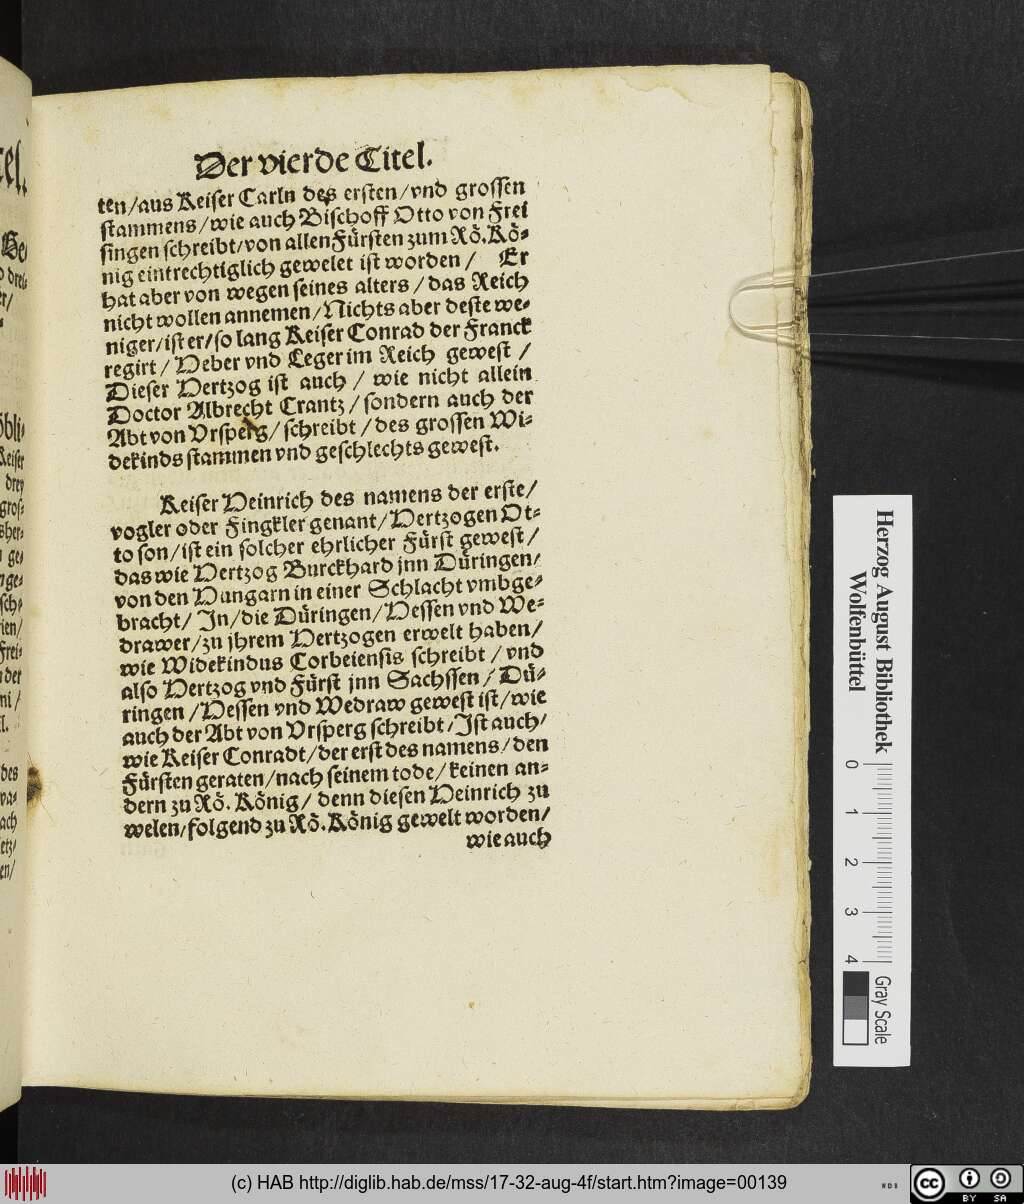 Der vierde Titel.
ten/aus Keiser Carln des ersten/vnd grossen
stammens/wie auch Bischoff Otto von Frei
singen schreibt/von allen Fürsten zum Rö.Kö-
nig eintrechtiglich gewelet ist worden/ Er
hat aber von wegen seines alters/das Reich
nicht wollen annemen/Nichts aber deste we-
niger/ist er/so lang Keiser Conrad der Franck
regirt/Heber vnd Leger im Reich gewest/
Dieser Hertzog ist auch/wie nicht allein
Doctor Albrecht Crantz/sondern auch der
Abt von Vrsperg/schreibt/des grossen Wi-
dekinds stammen vnd geschlechts gewest.
Keiser Heinrich des namens der erste/
vogler oder Finckler genant/Hertzogen Ot-
to son/ist ein solcher ehrlicher Fürst gewest/
das wie Hertzog Burckhard jnn Düringen/
von den Hungarn in einer Schlacht vmbge-
bracht/ Jn/die Düringen/Hessen vnd We-
drawer/zu jhrem Hertzogen erwelt haben/
wie Widekindus Corbeiensis schreibt/vnd
also Hertzog vnd Fürst jnn Sachssen/Dü-
ringen/Hessen vnd Wedraw gewest ist/wie
auch der Abt von Vrsperg schreibt/Jst auch/
wie Keiser Conradt/der erst des namens/den
Fürsten geraten/nach seinem tode/keinen an-
dern zu Rö. König/denn diesen Heinrich zu
welen/folgend zu Rö.König gewelt worden/
wie auch
Herzog August Bibliothek
Wolfenbüttel
0 1 2 3 4
Gray Scale
(c) HAB http://diglib.hab.de/mss/17-32-aug-4f/start.htm?image=00139
WDB
CC BY SA